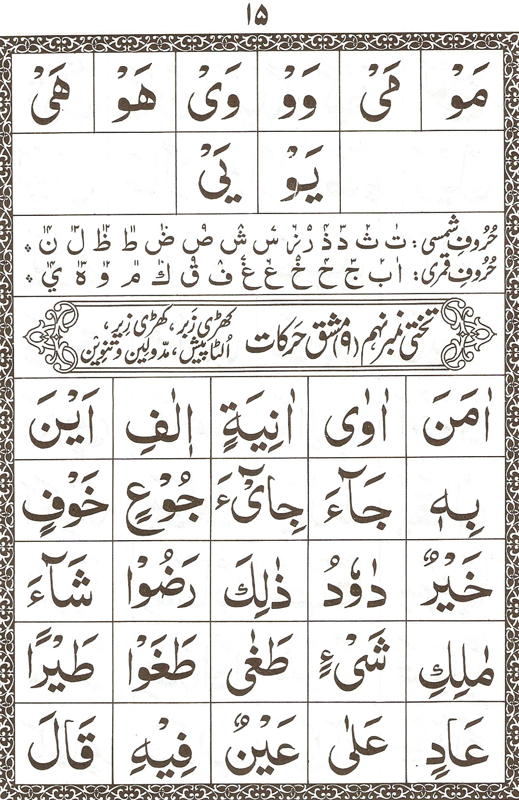 ۱۵
مَوْ مَیْ وَوْ وَیْ هَوْ هَیْ
یَوْ یَیْ
حُرُوفِ شمسی: ت ث د ذ ر ز س ش ص ض ط ظ ل ن
حُرُوفِ قمری: ا ب ج ح خ ع غ ف ق ك م و ه ي
تختی نمبر نہم (۹) مشق حرکات کھڑی زَبر، کھڑی زیر،
اُلٹا پیش، مدّ و لین و تنوین
اٰمَنَ اٰوٰى اٰنِيَةٍ اٖلٰفِ اَيْنَ
بِهٖ جَآءَ جِایْٓءَ جُوْعٍ خَوْفٍ
خَيْرٌ دَاوٗدُ ذٰلِكَ رَضُوْا شَآءَ
مٰلِكِ شَىْءٍ طَغٰى طَغَوْا طَيْرًا
عَادٍ عَلٰى عَيْنٌ فِيْهِ قَالَ